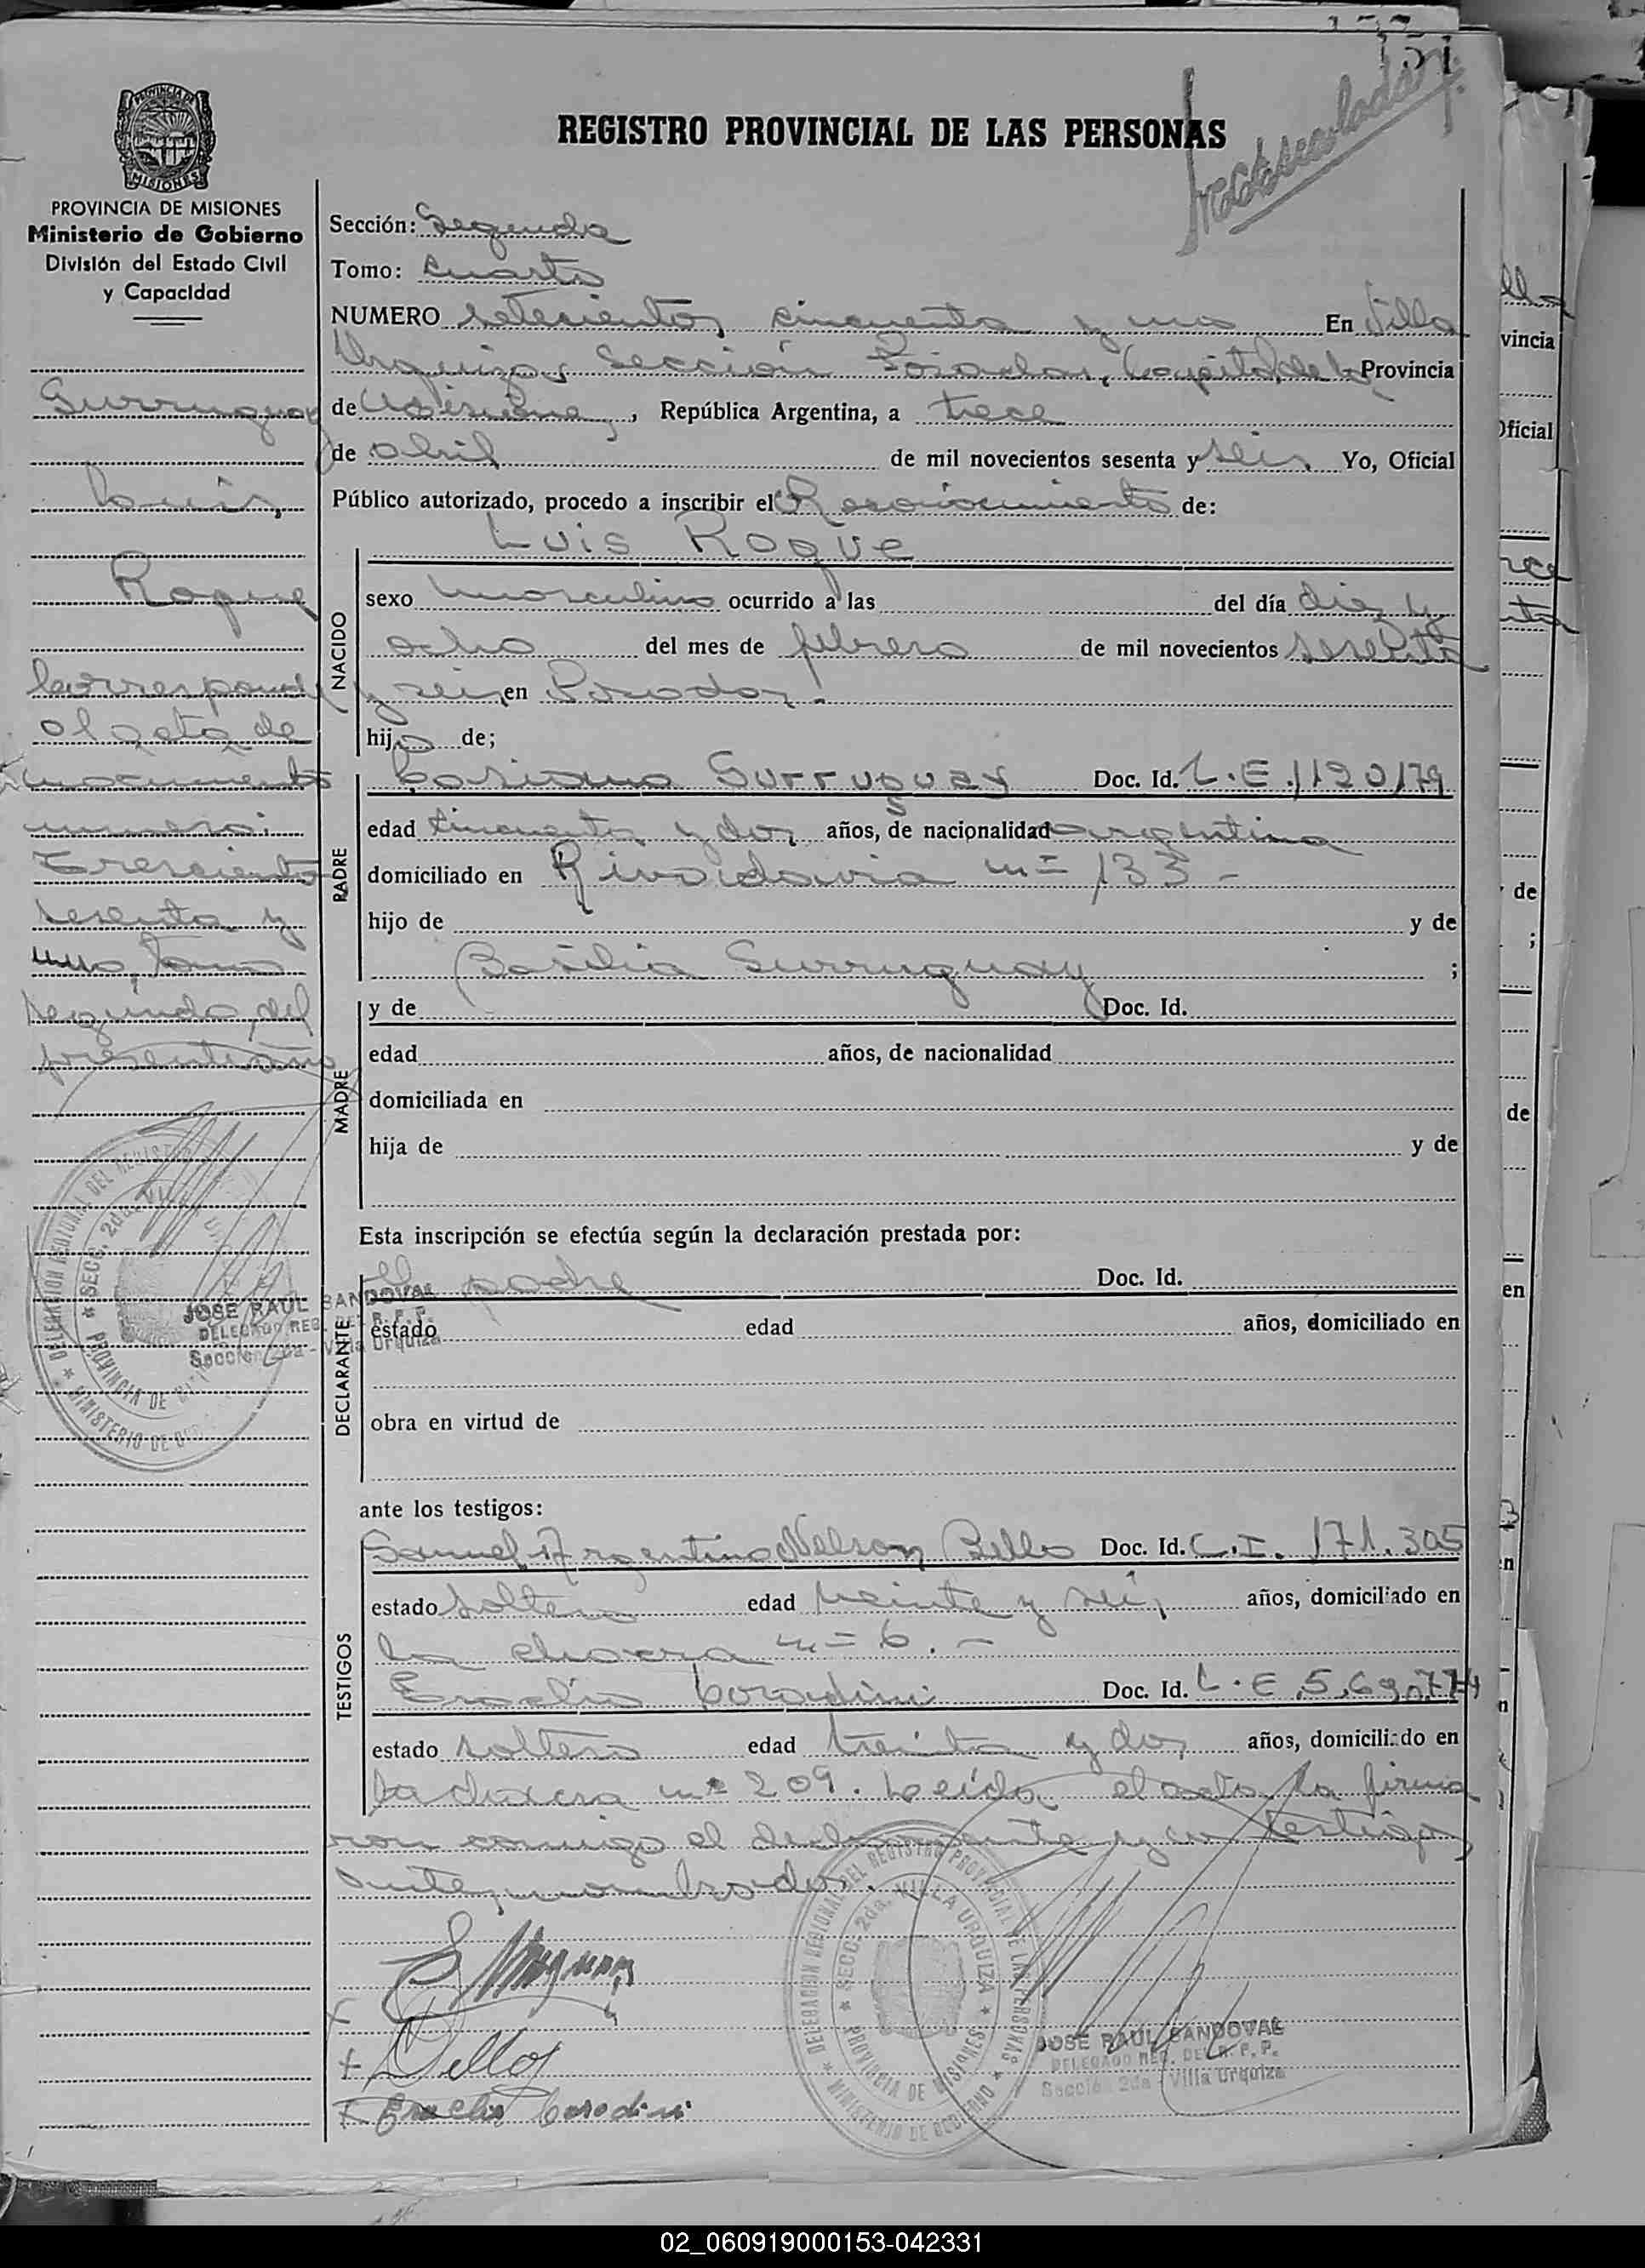 151
Inmatriculado.
PROVINCIA DE
MISIONES
REGISTRO PROVINCIAL DE LAS PERSONAS
PROVINCIA DE MISIONES
Ministerio de Gobierno
División del Estado Civil
y Capacidad
Surruguay
Luis,
Roque
Corresponde
al acta de
nacimiento
numero:
trescientos
sesenta y
uno, tomo
segundo, del
presente año
Sección: Segunda
Tomo: Cuarto
NUMERO setecientos cincuenta y uno En Villa
Urquiza, Sección Posadas, Capital de la Provincia
de Misiones, República Argentina, a trece
de abril de mil novecientos sesenta y seis Yo, Oficial
Público autorizado, procedo a inscribir el Reconocimiento de:
NACIDO
Luis Roque
sexo masculino ocurrido a las del día diez y
ocho del mes de febrero de mil novecientos sesenta
y seis, en Posadas.
hijo de;
PADRE
Casiano Surruguay Doc. Id. L.E. 1120179
edad cincuenta y dos años, de nacionalidad argentina
domiciliado en Rivadavia nº 133 -
hijo de y de
Basilia Surruguay ;
MADRE
y de Doc. Id.
edad años, de nacionalidad
domiciliada en
hija de y de
Esta inscripción se efectúa según la declaración prestada por:
DECLARANTE
El padre Doc. Id.
estado edad años, domiciliado en
obra en virtud de
JOSE RAUL SANDOVAL
DELEGADO REG. DEL R. P. P.
Sección 2da - Villa Urquiza
ante los testigos:
TESTIGOS
Samuel Argentino Nelson Bello Doc. Id. C.I. 171.305
estado soltero edad veinte y seis, años, domiciliado en
la chacra nº 6. -
Eraclio Corodini Doc. Id. L.E. 5.690.774
estado soltero edad treinta y dos, años, domiciliado en
la chacra nº 209. Leída el acta, la firma
ron conmigo el declarante y los testigos
antes nombrados.
DELEGACION REGIONAL DEL REGISTRO PROVINCIAL DE LAS PERSONAS
SECC. 2da. VILLA URQUIZA
PROVINCIA DE MISIONES
MINISTERIO DE GOBIERNO
Eraclio Corodini
JOSE RAUL SANDOVAL
DELEGADO REG. DEL R. P. P.
Sección 2da - Villa Urquiza
02_060919000153-042331